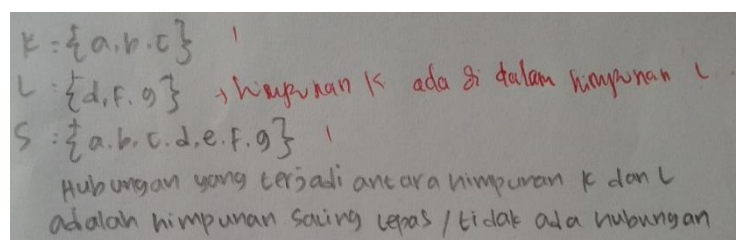 K = {a, b, c} 1
L : {d, f, g} → himpunan K ada di dalam himpunan L
S : {a. b. c. d. e. f. g} 1
Hubungan yang terjadi antara himpunan K dan L
adalah himpunan saling lepas / tidak ada hubungan